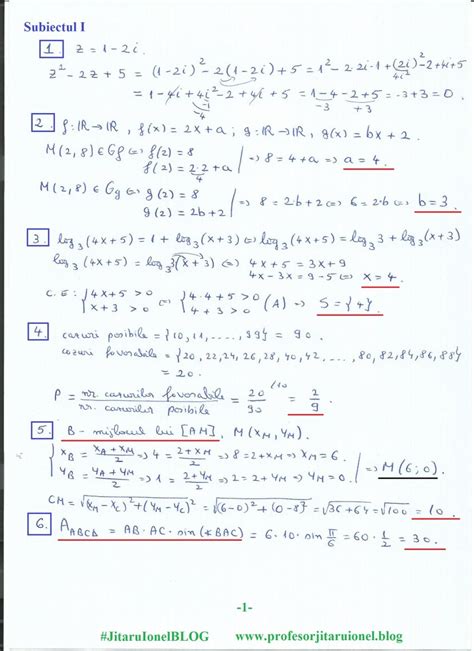 Subiectul I
1. z = 1-2i.
z² - 2z + 5 = (1-2i)² - 2(1-2i) + 5 = 1² - 2·2i·1 + (2i)² - 2 + 4i + 5
4i²
= 1 - 4i + 4i² - 2 + 4i + 5 = 1 - 4 - 2 + 5 = -3 + 3 = 0.
-1 -4 -3 +3
2. f: ℝ→ℝ, f(x) = 2x + a ; g: ℝ→ℝ, g(x) = bx + 2.
M(2,8) ∈ Gf ⇔ f(2) = 8
f(2) = 2·2 + a | ⇒ 8 = 4 + a ⇒ a = 4.
4
M(2,8) ∈ Gg ⇔ g(2) = 8
g(2) = 2b + 2 | ⇒ 8 = 2·b + 2 ⇔ 6 = 2·b ⇔ b = 3.
3. log₃(4x+5) = 1 + log₃(x+3) ⇔ log₃(4x+5) = log₃3 + log₃(x+3)
log₃(4x+5) = log₃3(x+3) ⇔ 4x+5 = 3x+9
4x - 3x = 9 - 5 ⇔ x = 4.
C.E: { 4x+5 > 0 ⇔ { 4·4+5 > 0 (A) ⇒ S = {4}.
x+3 > 0 4+3 > 0
4. cazuri posibile = {10, 11, ......, 99} = 90.
cazuri favorabile = {20, 22, 24, 26, 28, 40, 42, ...., 80, 82, 84, 86, 88}
= 20.
P = nr. cazurilor favorabile / nr. cazurilor posibile = 20/90 ⁽¹⁰ = 2/9
5. B - mijlocul lui [AM], M(x_M, y_M).
{ x_B = (x_A + x_M)/2 ⇒ 4 = (2 + x_M)/2 ⇒ 8 = 2 + x_M ⇒ x_M = 6.
y_B = (y_A + y_M)/2 ⇒ 1 = (2 + y_M)/2 ⇒ 2 = 2 + y_M ⇒ y_M = 0. | ⇒ M(6; 0).
CM = √((x_M - x_C)² + (y_M - y_C)²) = √((6-0)² + (0-8)²) = √(36+64) = √100 = 10.
6. A_ABCD = AB · AC · sin(∢BAC) = 6 · 10 · sin π/6 = 60 · 1/2 = 30.
-1-
#JitaruIonelBLOG www.profesorjitaruionel.blog